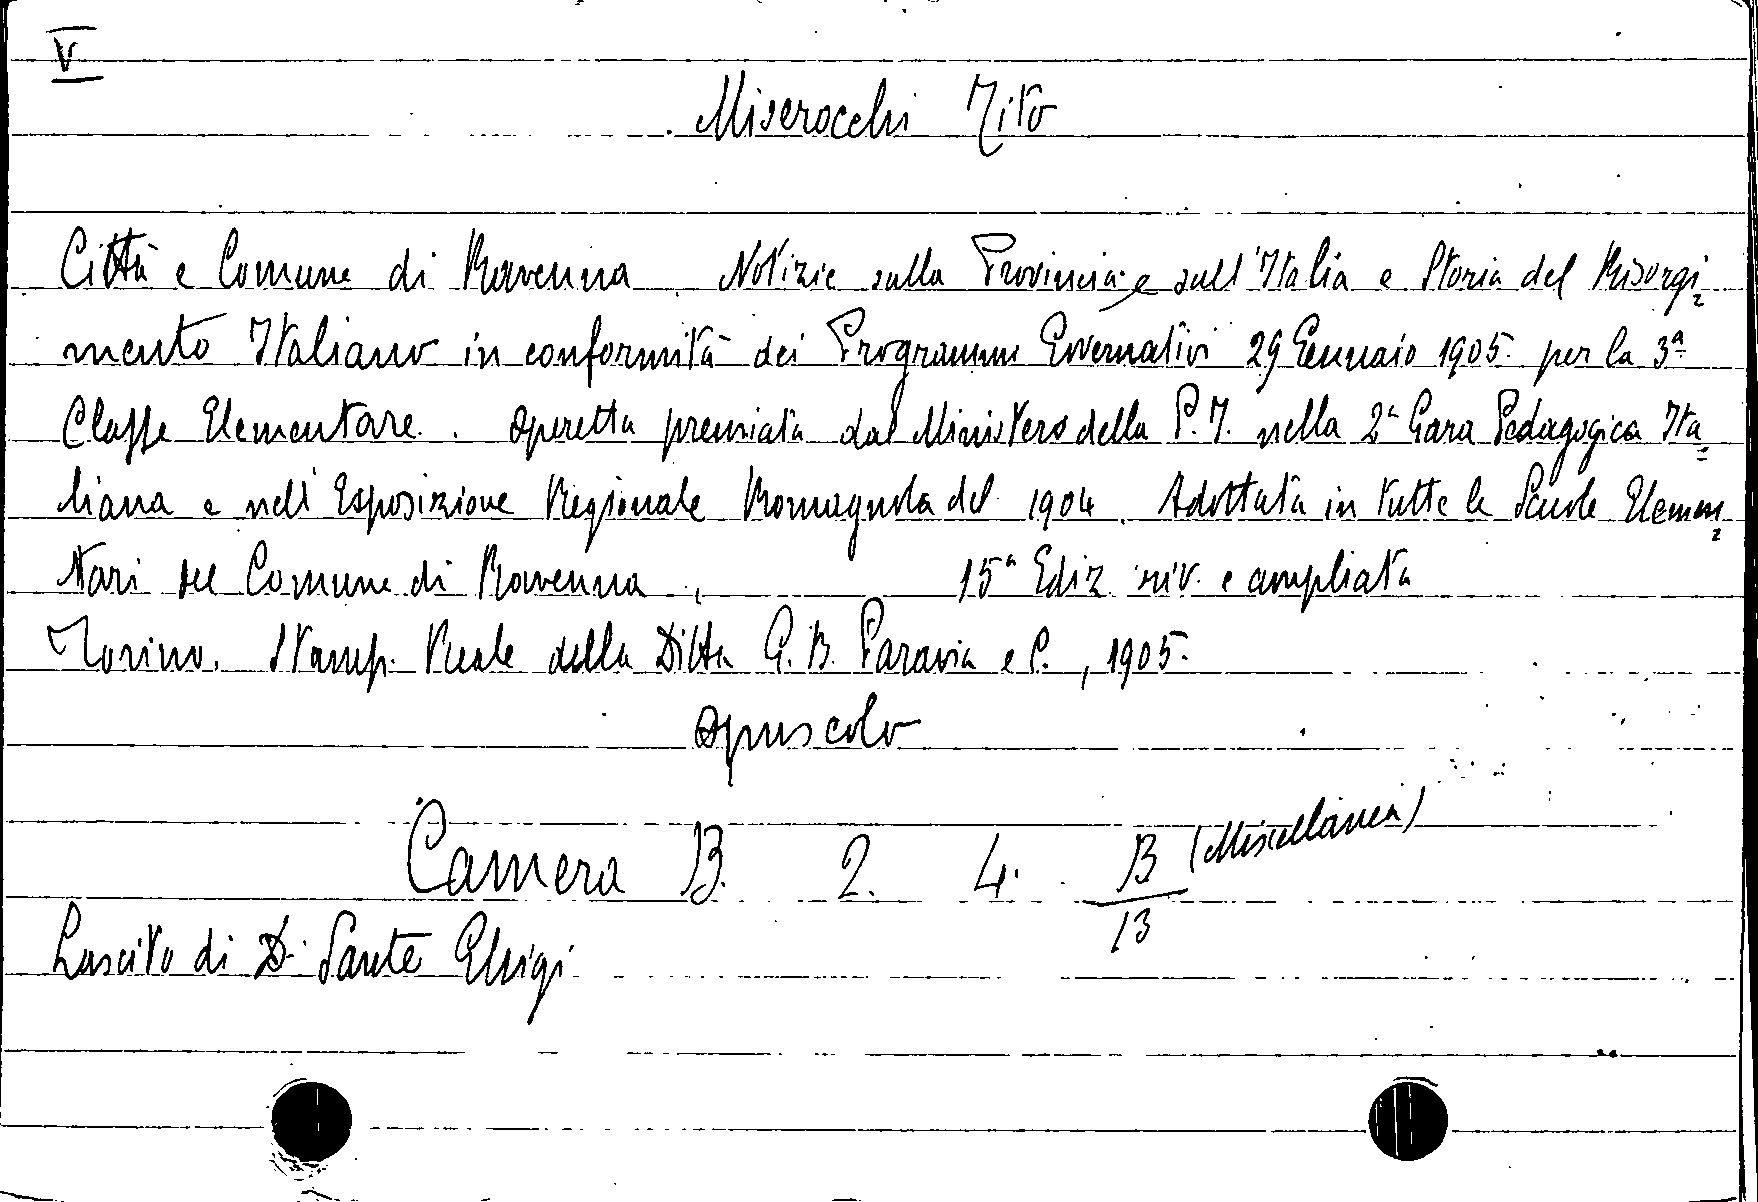 V
Miserocchi Tito
Città e Comune di Ravenna. Notizie sulla Provincia e sull'Italia e Storia del Risorgi=
mento Italiano in conformità dei Programmi Governativi 29 Gennaio 1905. per la 3ª
Classe Elementare. Operetta premiata dal Ministero della P. I. nella 2ª Gara Pedagogica Ita=
liana e nell'Esposizione Regionale Romagnola del 1904. Adottata in tutte le Scuole Elemen=
tari del Comune di Ravenna, 15ª Ediz riv. e ampliata
Torino. Stamp. Reale della Ditta G. B. Paravia e C., 1905.
Opuscolo
Camera B. 2. 4. B/13 (Miscellanea)
Lascito di D. Sante Ghigi